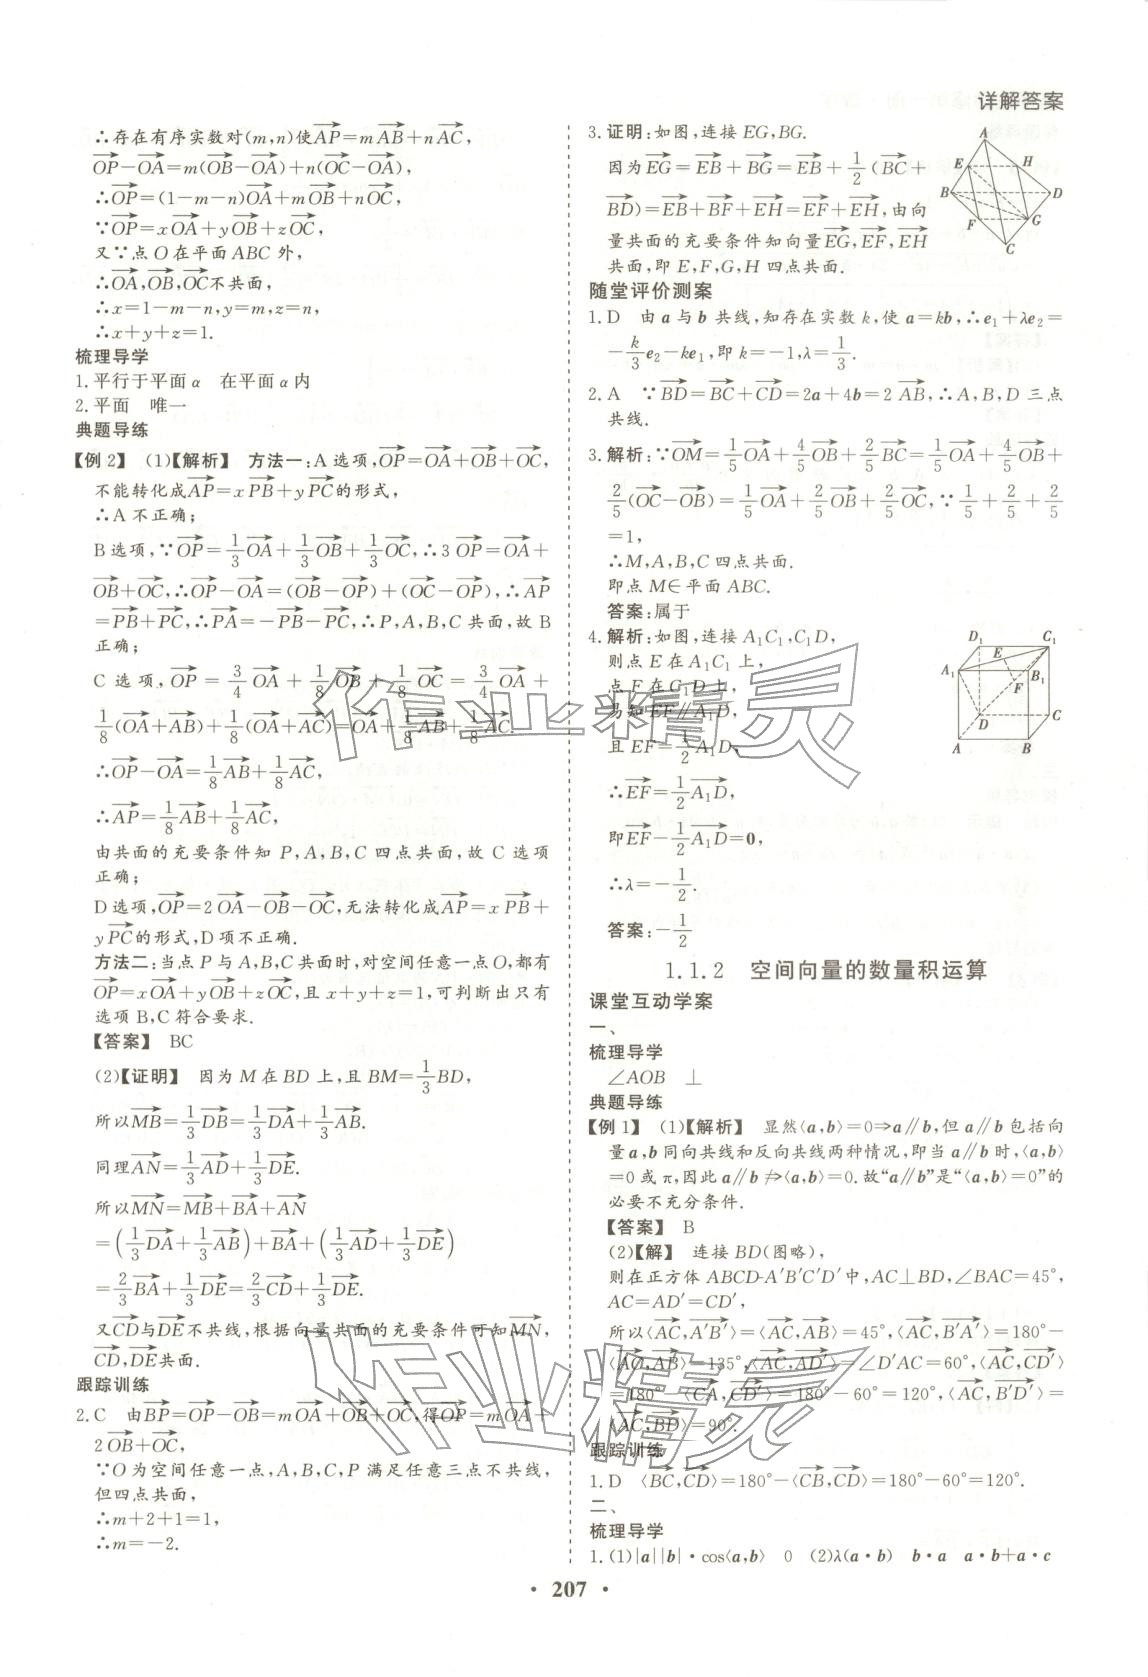 详解答案
∴存在有序实数对(m,n)使AP=mAB+nAC,
OP-OA=m(OB-OA)+n(OC-OA),
∴OP=(1-m-n)OA+mOB+nOC,
∵OP=xOA+yOB+zOC,
又∵点O在平面ABC外,
∴OA,OB,OC不共面,
∴x=1-m-n,y=m,z=n,
∴x+y+z=1.
梳理导学
1.平行于平面α 在平面α内
2.平面 唯一
典题导练
【例2】 (1)【解析】 方法一:A选项,OP=OA+OB+OC,
不能转化成AP=xPB+yPC的形式,
∴A不正确;
B选项,∵OP=1/3OA+1/3OB+1/3OC,∴3OP=OA+
OB+OC,∴OP-OA=(OB-OP)+(OC-OP),∴AP
=PB+PC,∴PA=-PB-PC,∴P,A,B,C共面,故B
正确;
C选项,OP=3/4OA+1/8OB+1/8OC=3/4OA+
1/8(OA+AB)+1/8(OA+AC)=OA+1/8AB+1/8AC.
∴OP-OA=1/8AB+1/8AC,
∴AP=1/8AB+1/8AC,
由共面的充要条件知P,A,B,C四点共面,故C选项
正确;
D选项,OP=2OA-OB-OC,无法转化成AP=xPB+
yPC的形式,D项不正确.
方法二:当点P与A,B,C共面时,对空间任意一点O,都有
OP=xOA+yOB+zOC,且x+y+z=1,可判断出只有
选项B,C符合要求.
【答案】 BC
(2)【证明】 因为M在BD上,且BM=1/3BD,
所以MB=1/3DB=1/3DA+1/3AB.
同理AN=1/3AD+1/3DE.
所以MN=MB+BA+AN
=(1/3DA+1/3AB)+BA+(1/3AD+1/3DE)
=2/3BA+1/3DE=2/3CD+1/3DE.
又CD与DE不共线,根据向量共面的充要条件可知MN,
CD,DE共面.
跟踪训练
2.C 由BP=OP-OB=mOA+OB+OC,得OP=mOA+
2OB+OC,
∵O为空间任意一点,A,B,C,P满足任意三点不共线,
但四点共面,
∴m+2+1=1,
∴m=-2.
3.证明:如图,连接EG,BG.
因为EG=EB+BG=EB+1/2(BC+
BD)=EB+BF+EH=EF+EH,由向
量共面的充要条件知向量EG,EF,EH
共面,即E,F,G,H四点共面.
A
E
H
B
D
F
G
C
随堂评价测案
1.D 由a与b共线,知存在实数k,使a=kb,∴e₁+λe₂=
-k/3e₂-ke₁,即k=-1,λ=1/3.
2.A ∵BD=BC+CD=2a+4b=2AB,∴A,B,D三点
共线.
3.解析:∵OM=1/5OA+4/5OB+2/5BC=1/5OA+4/5OB+
2/5(OC-OB)=1/5OA+2/5OB+2/5OC,∵1/5+2/5+2/5
=1,
∴M,A,B,C四点共面.
即点M∈平面ABC.
答案:属于
4.解析:如图,连接A₁C₁,C₁D,
则点E在A₁C₁上,
点F在C₁D上,
易知EF∥A₁D,
且EF=1/2A₁D,
∴EF=1/2A₁D,
即EF-1/2A₁D=0,
∴λ=-1/2.
答案:-1/2
D₁
C₁
E
A₁
B₁
F
D
C
A
B
1.1.2 空间向量的数量积运算
课堂互动学案
一、
梳理导学
∠AOB ⊥
典题导练
【例1】 (1)【解析】 显然⟨a,b⟩=0⇒a∥b,但a∥b包括向
量a,b同向共线和反向共线两种情况,即当a∥b时,⟨a,b⟩
=0或π,因此a∥b⇏⟨a,b⟩=0.故“a∥b”是“⟨a,b⟩=0”的
必要不充分条件.
【答案】 B
(2)【解】 连接BD(图略),
则在正方体ABCD-A′B′C′D′中,AC⊥BD,∠BAC=45°,
AC=AD′=CD′,
所以⟨AC,A′B′⟩=⟨AC,AB⟩=45°,⟨AC,B′A′⟩=180°-
⟨AC,AB⟩=135°,⟨AC,AD′⟩=∠D′AC=60°,⟨AC,CD′⟩
=180°-⟨CA,CD′⟩=180°-60°=120°,⟨AC,B′D′⟩=
⟨AC,BD⟩=90°.
跟踪训练
1.D ⟨BC,CD⟩=180°-⟨CB,CD⟩=180°-60°=120°.
二、
梳理导学
1.(1)|a||b|·cos⟨a,b⟩ 0 (2)λ(a·b) b·a a·b+a·c
· 207 ·
作业精灵
作业精灵